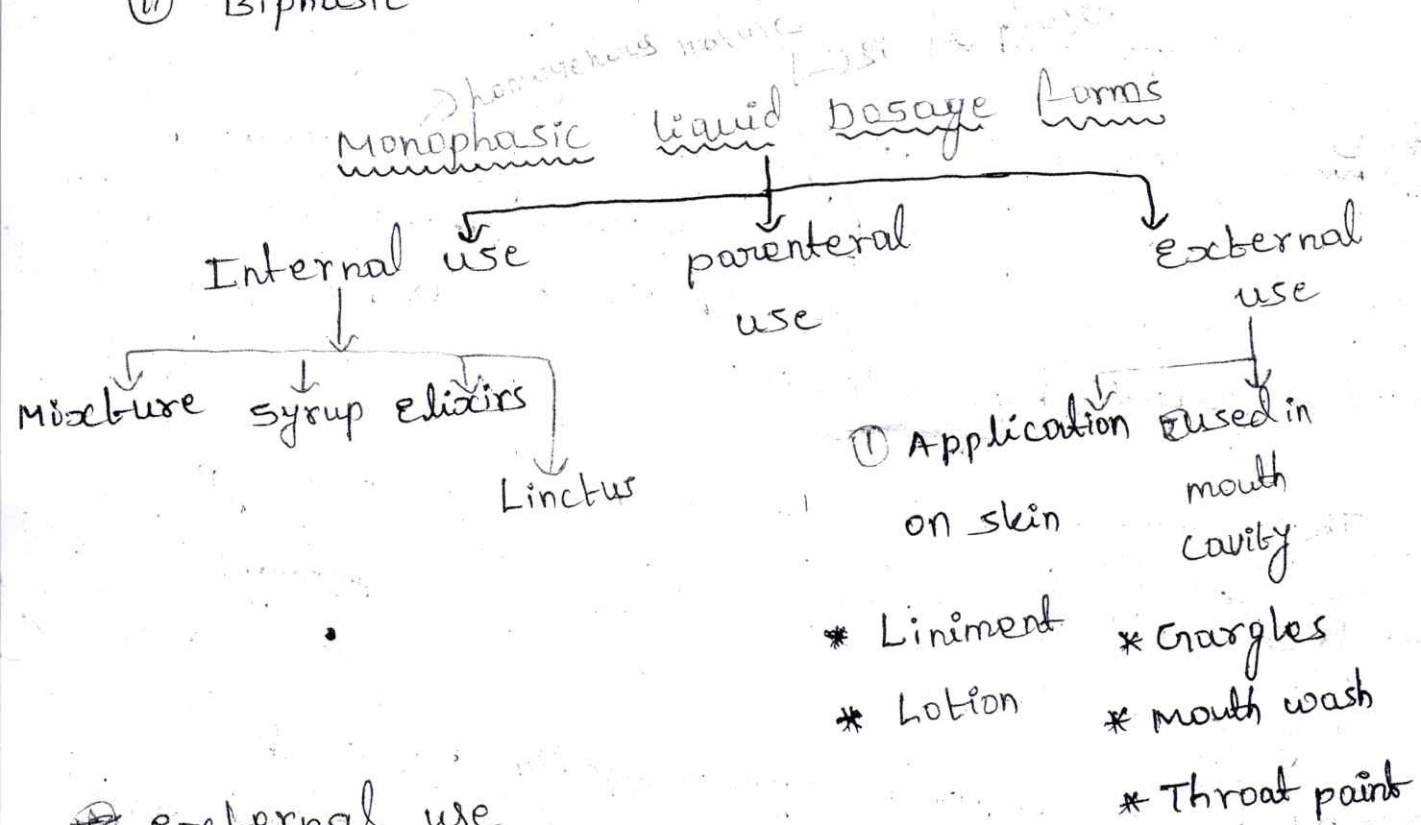 ii Biphasic
homogenous nature
Monophasic liquid Dosage forms
Internal use
parenteral
use
External
use
Mixture syrup Elixirs
Linctus
① Application
on skin
used in
mouth
cavity
* Liniment
* Lotion
* Gargles
* Mouth wash
* Throat paint
external use